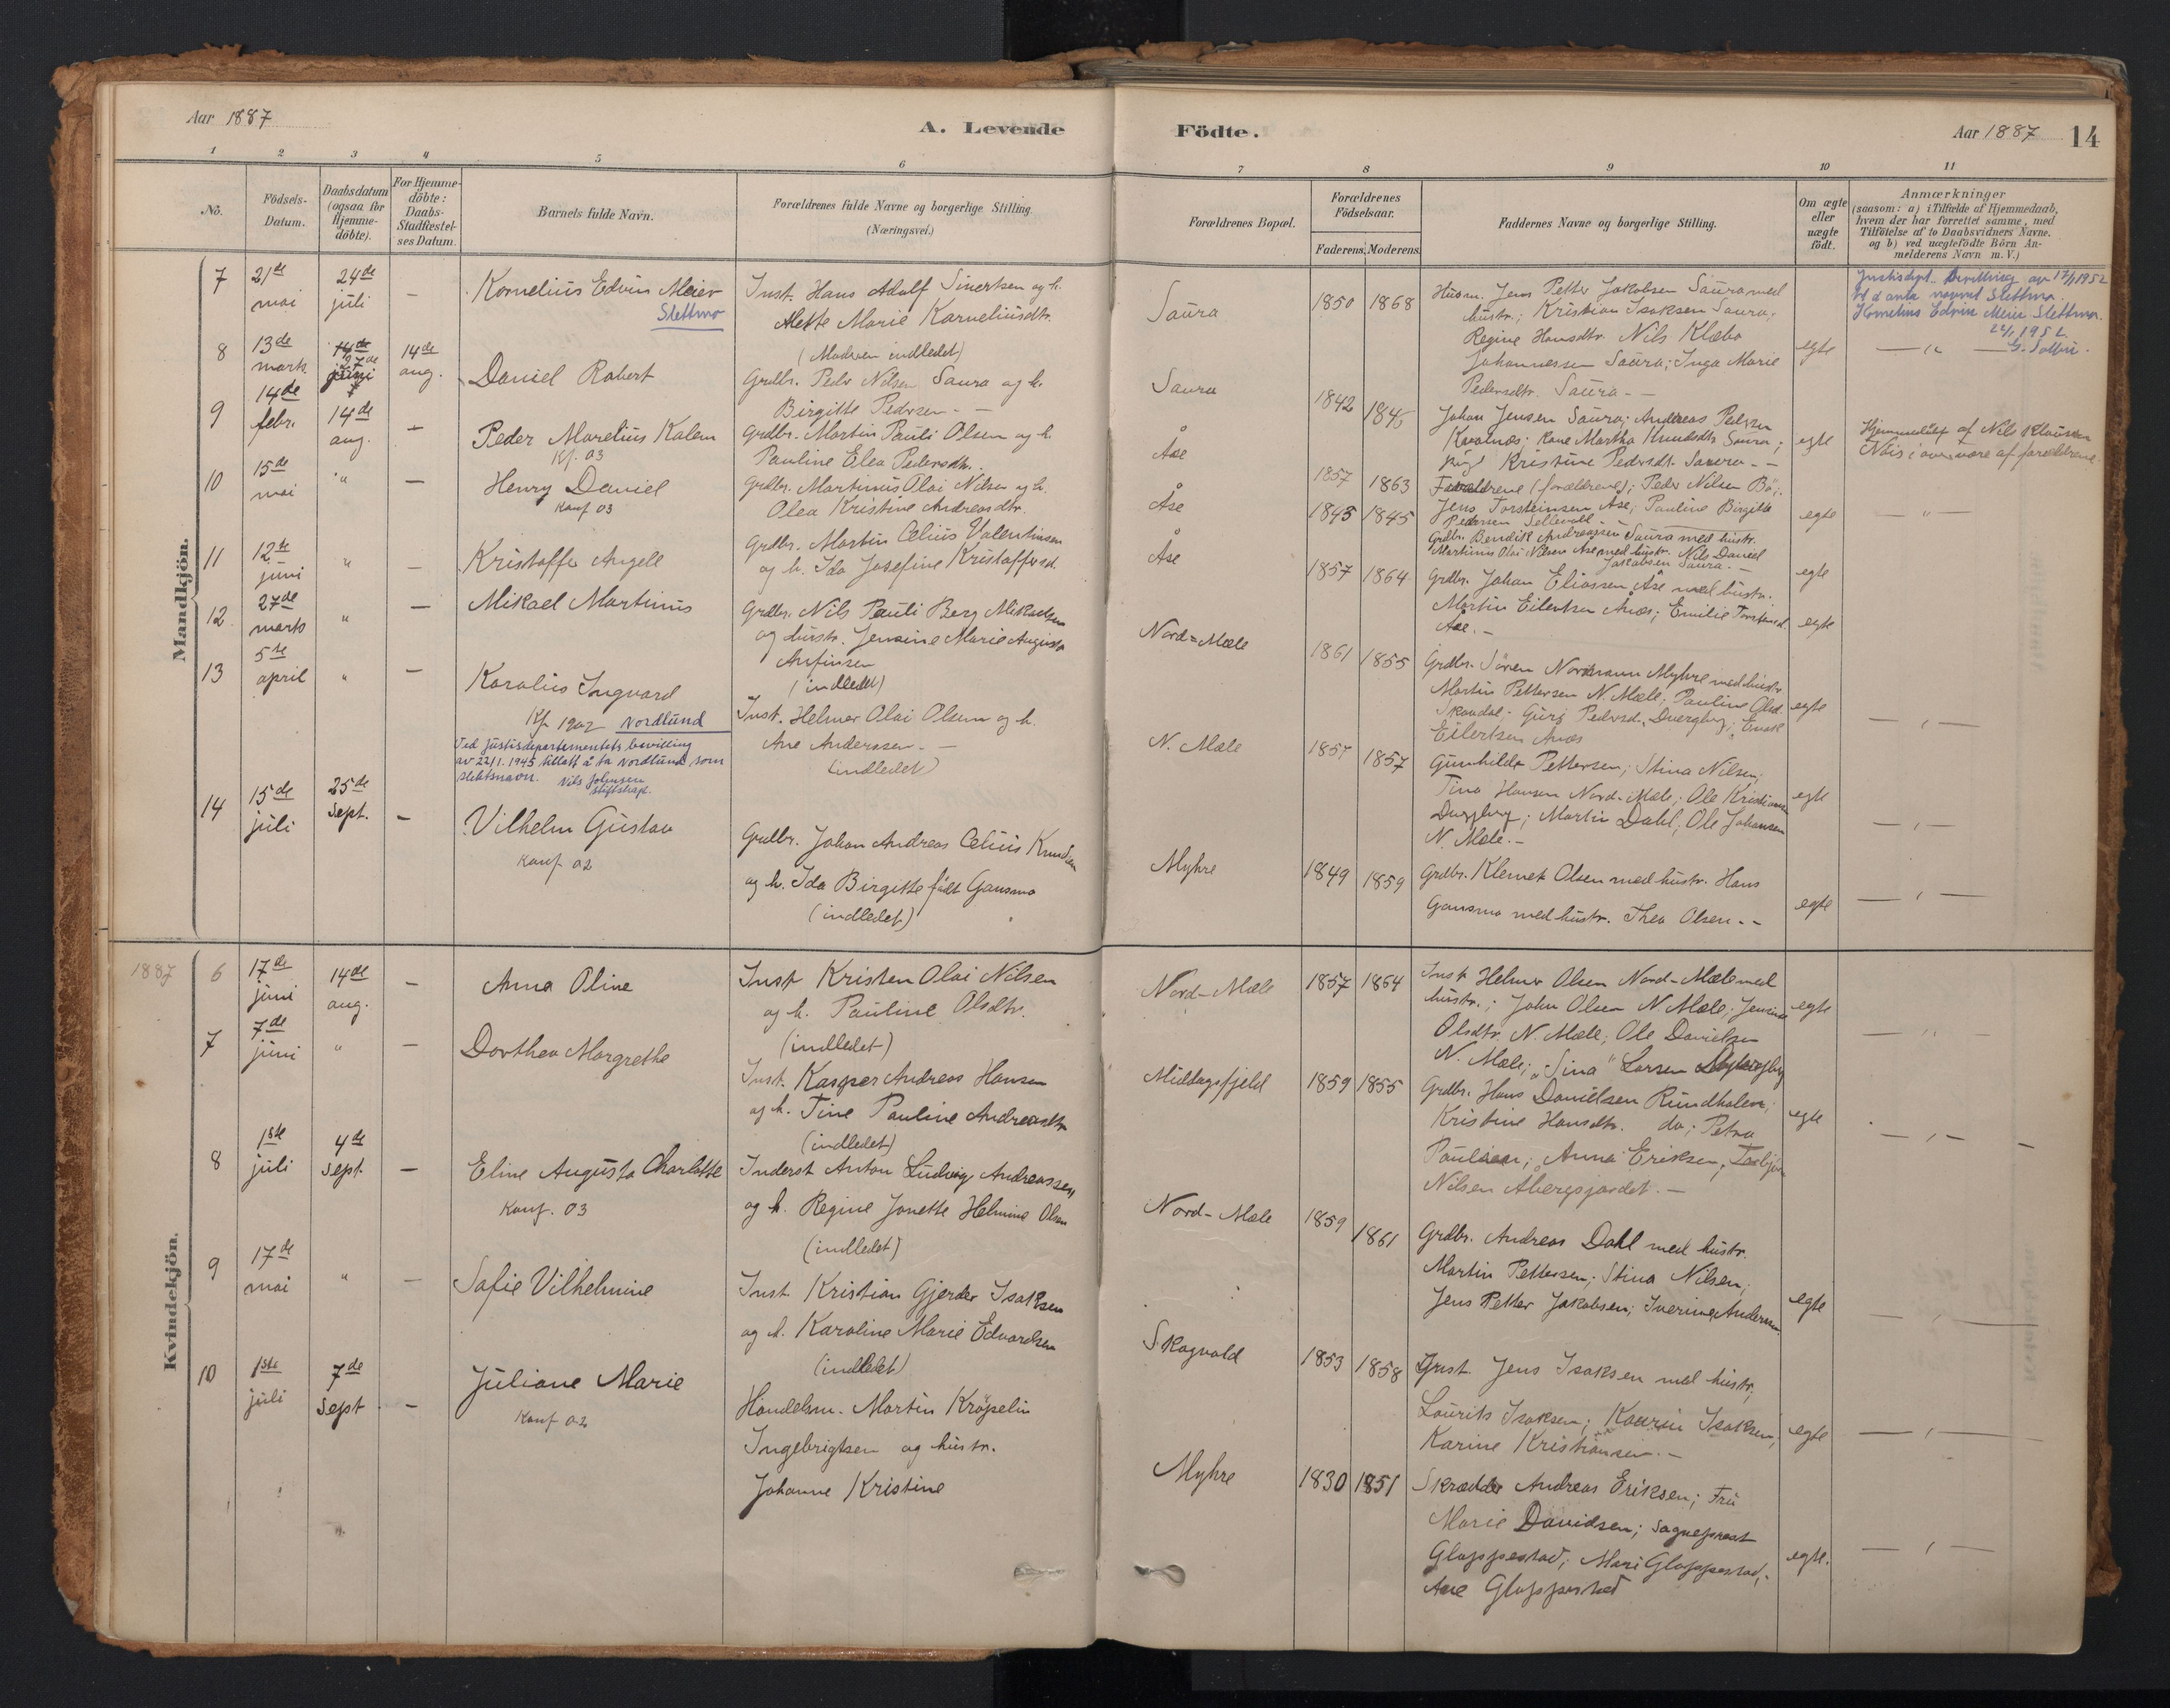 Aar 1887
A. Levende
Födte.
Aar 1887
14
1 2 3 4 5 6 7 8 9 10 11
No.
Födsels-
Datum.
Daabsdatum
(ogsaa for
Hjemme-
döbte).
For Hjemme-
döbte:
Daabs-
Stadfæstel-
ses Datum.
Barnets fulde Navn.
Forældrenes fulde Navne og borgerlige Stilling.
(Næringsvei.)
Forældrenes Bopæl.
Forældrenes
Födselsaar.
Faderens. Moderens.
Faddernes Navne og borgerlige Stilling.
Om ægte
eller
uægte
födt.
Anmærkninger
(saasom: a) i Tilfælde af Hjemmedaab,
hvem der har forrettet samme, med
Tilföielse af to Daabsvidners Navne,
og b) ved uægtefödte Börn An-
melderens Navn m. V.)
Mandkjön.
7
21de
mai
24de
juli
—
Kornelius Edvin Meier
Slettmo
Inst. Hans Adolf Sivertsen og h.
Alette Marie Korneliusdtr.
(Moderen indledet)
Saura
1850 1868
Husm. Jens Petter Jakobsen Saura med
hustr.; Kristian Isaksen Saura;
Regine Hansdtr. Nils Klæbo
Johannessen Saura; Inga Marie
Pedersdtr. Saura. —
egte
Justisdept. bevilling av 17/1 1952
Slettmo.
Kornelius Edvin Meier Slettmo.
8
13de
marts
14de
juni
14de
aug.
Daniel Robert
Grdbr. Peder Nilsen Saura og h.
Birgitte Pedersen. —
Saura
1842 1845
Johan Jensen Saura; Andreas Pedersen
Kvalnæs; Kone Martha Knudsdtr. Saura;
Kristine Pedersdt. Saura. —
egte
Hjemmedøbt af Nils Klausen
af forældrene.
9
14de
febr.
14de
aug.
—
Peder Marelius Kalem
Kf. 03
Grdbr. Martin Pauli Olsen og h.
Pauline Elea Pedersdtr.
Åse
1857 1863
Forældrene (forældrene); Peder Nilsen Bö;
Jens Torsteinsen Åse; Pauline Birgitte
Pedersen Sellevold —
egte
— " —
10
15de
mai
"
—
Henry Daniel
Konf 03
Grdbr. Martinus Olai Nilsen og h.
Olea Kristine Andreasdtr.
Åse
1845 1845
Grdbr. Bendik Andreassen Saura med hustr.
Martinus Olai Nilsen Åse med hustr. Nils Daniel
Jakobsen Saura. —
egte
11
12te
juni
"
—
Kristoffer Angell
Grdbr. Martin Celius Valentinsen
og h. Ida Josefine Kristoffersd.
Åse
1857 1864
Grdbr. Johan Eliassen Åse med hustr.
Martin Eilertsen Ånæs; Emilie Torstensd.
Åse. —
egte
12
27de
marts
"
—
Mikael Martinus
Grdbr. Nils Pauli Berg Mikaelsen
og hustr. Jensine Marie Augusta
Arnfinsen
(indledet)
Nord-Mæle
1861 1855
Grdbr. Sören Nordmann Myhre med hustr
Martin Pettersen N. Mæle; Pauline Olsd.
Skandal; Guri Pedersd. Dvergberg;
Eilertsen Anæs
egte
— " —
13
5te
april
"
—
Karolius Ingvard
Kf 1902 Nordlund
Ved justisdepartementets bevilling
av 22/1. 1945 tillatt å ta Nordlund som
slektsnavn. Nils Johnsen
Inst. Helmer Olai Olsen og h.
Ane Anderssen. —
(indledet)
N. Mæle
1857 1857
Gunhilde Pettersen; Stina Nilsen;
Tina Hansen Nord-Mæle; Ole Kristiansen
Dvergberg; Martin Dahl; Ole Johansen
N. Mæle. —
egte
— " —
14
15de
juli
25de
Sept.
—
Vilhelm Gustav
Konf 02
Grdbr. Johan Andreas Celius Knudsen
og h. Ida Birgitte født Gausmo
(indledet)
Myhre
1849 1859
Grdbr. Klemet Olsen med hustr. Hans
Gausmo med hustr. Thea Olsen. —
egte
— " —
1887
Kvindekjön.
6
17de
juni
14de
aug.
—
Anna Oline
Inst Kristen Olai Nilsen
og h. Pauline Olsdtr.
(indledet)
Nord-Mæle
1857 1864
Inst Helmer Olsen Nord-Mæle med
hustr.; John Olsen N. Mæle; Jensine
Olsdtr. N. Mæle; Ole Davidsen
N. Mæle; "Sina" Larsen
egte
— " —
7
7de
juni
"
—
Dorthea Margrethe
Inst. Kasper Andreas Hansen
og h. Tine Pauline Andreasdtr
(indledet)
Middagsfjeld
1859 1855
Grdbr. Hans Danielsen Rundholen;
Kristine Hansdtr. do; Petra
Paulsen; Anna Eriksen;
Nilsen Åbergsjordet. —
egte
— " —
8
1ste
juli
4de
Sept.
—
Eline Augusta Charlotte
Konf. 03
Inderst Anton Ludvig Andreassen
og h. Regine Jonette Helmine Olsen
(indledet)
Nord-Mæle
1859 1861
Grdbr. Andreas Dahl med hustr.
Martin Pettersen; Stina Nilsen;
Jens Petter Jakobsen; Iverine Andersen.
egte
— " —
9
17de
mai
"
—
Sofie Vilhelmine
Inst. Kristian Gjerder Isaksen
og h. Karoline Marie Edvardsen
(indledet)
Skogvold
1853 1858
Inst. Jens Isaksen med hustr;
Laurits Isaksen; Kaurin Isaksen;
Karine Kristiansen. —
egte
— " —
10
1ste
juli
7de
Sept
—
Juliane Marie
Konf 02
Handelsm. Martin Kröpelin
Ingebrigtsen og hustr.
Johanne Kristine
Myhre
1830 1851
Skrædder Andreas Eriksen; Fru
Marie Davidsen; Sognepræst
Gloppestad; Mari Gloppestad;
Ane Gloppestad
egte.
— " —